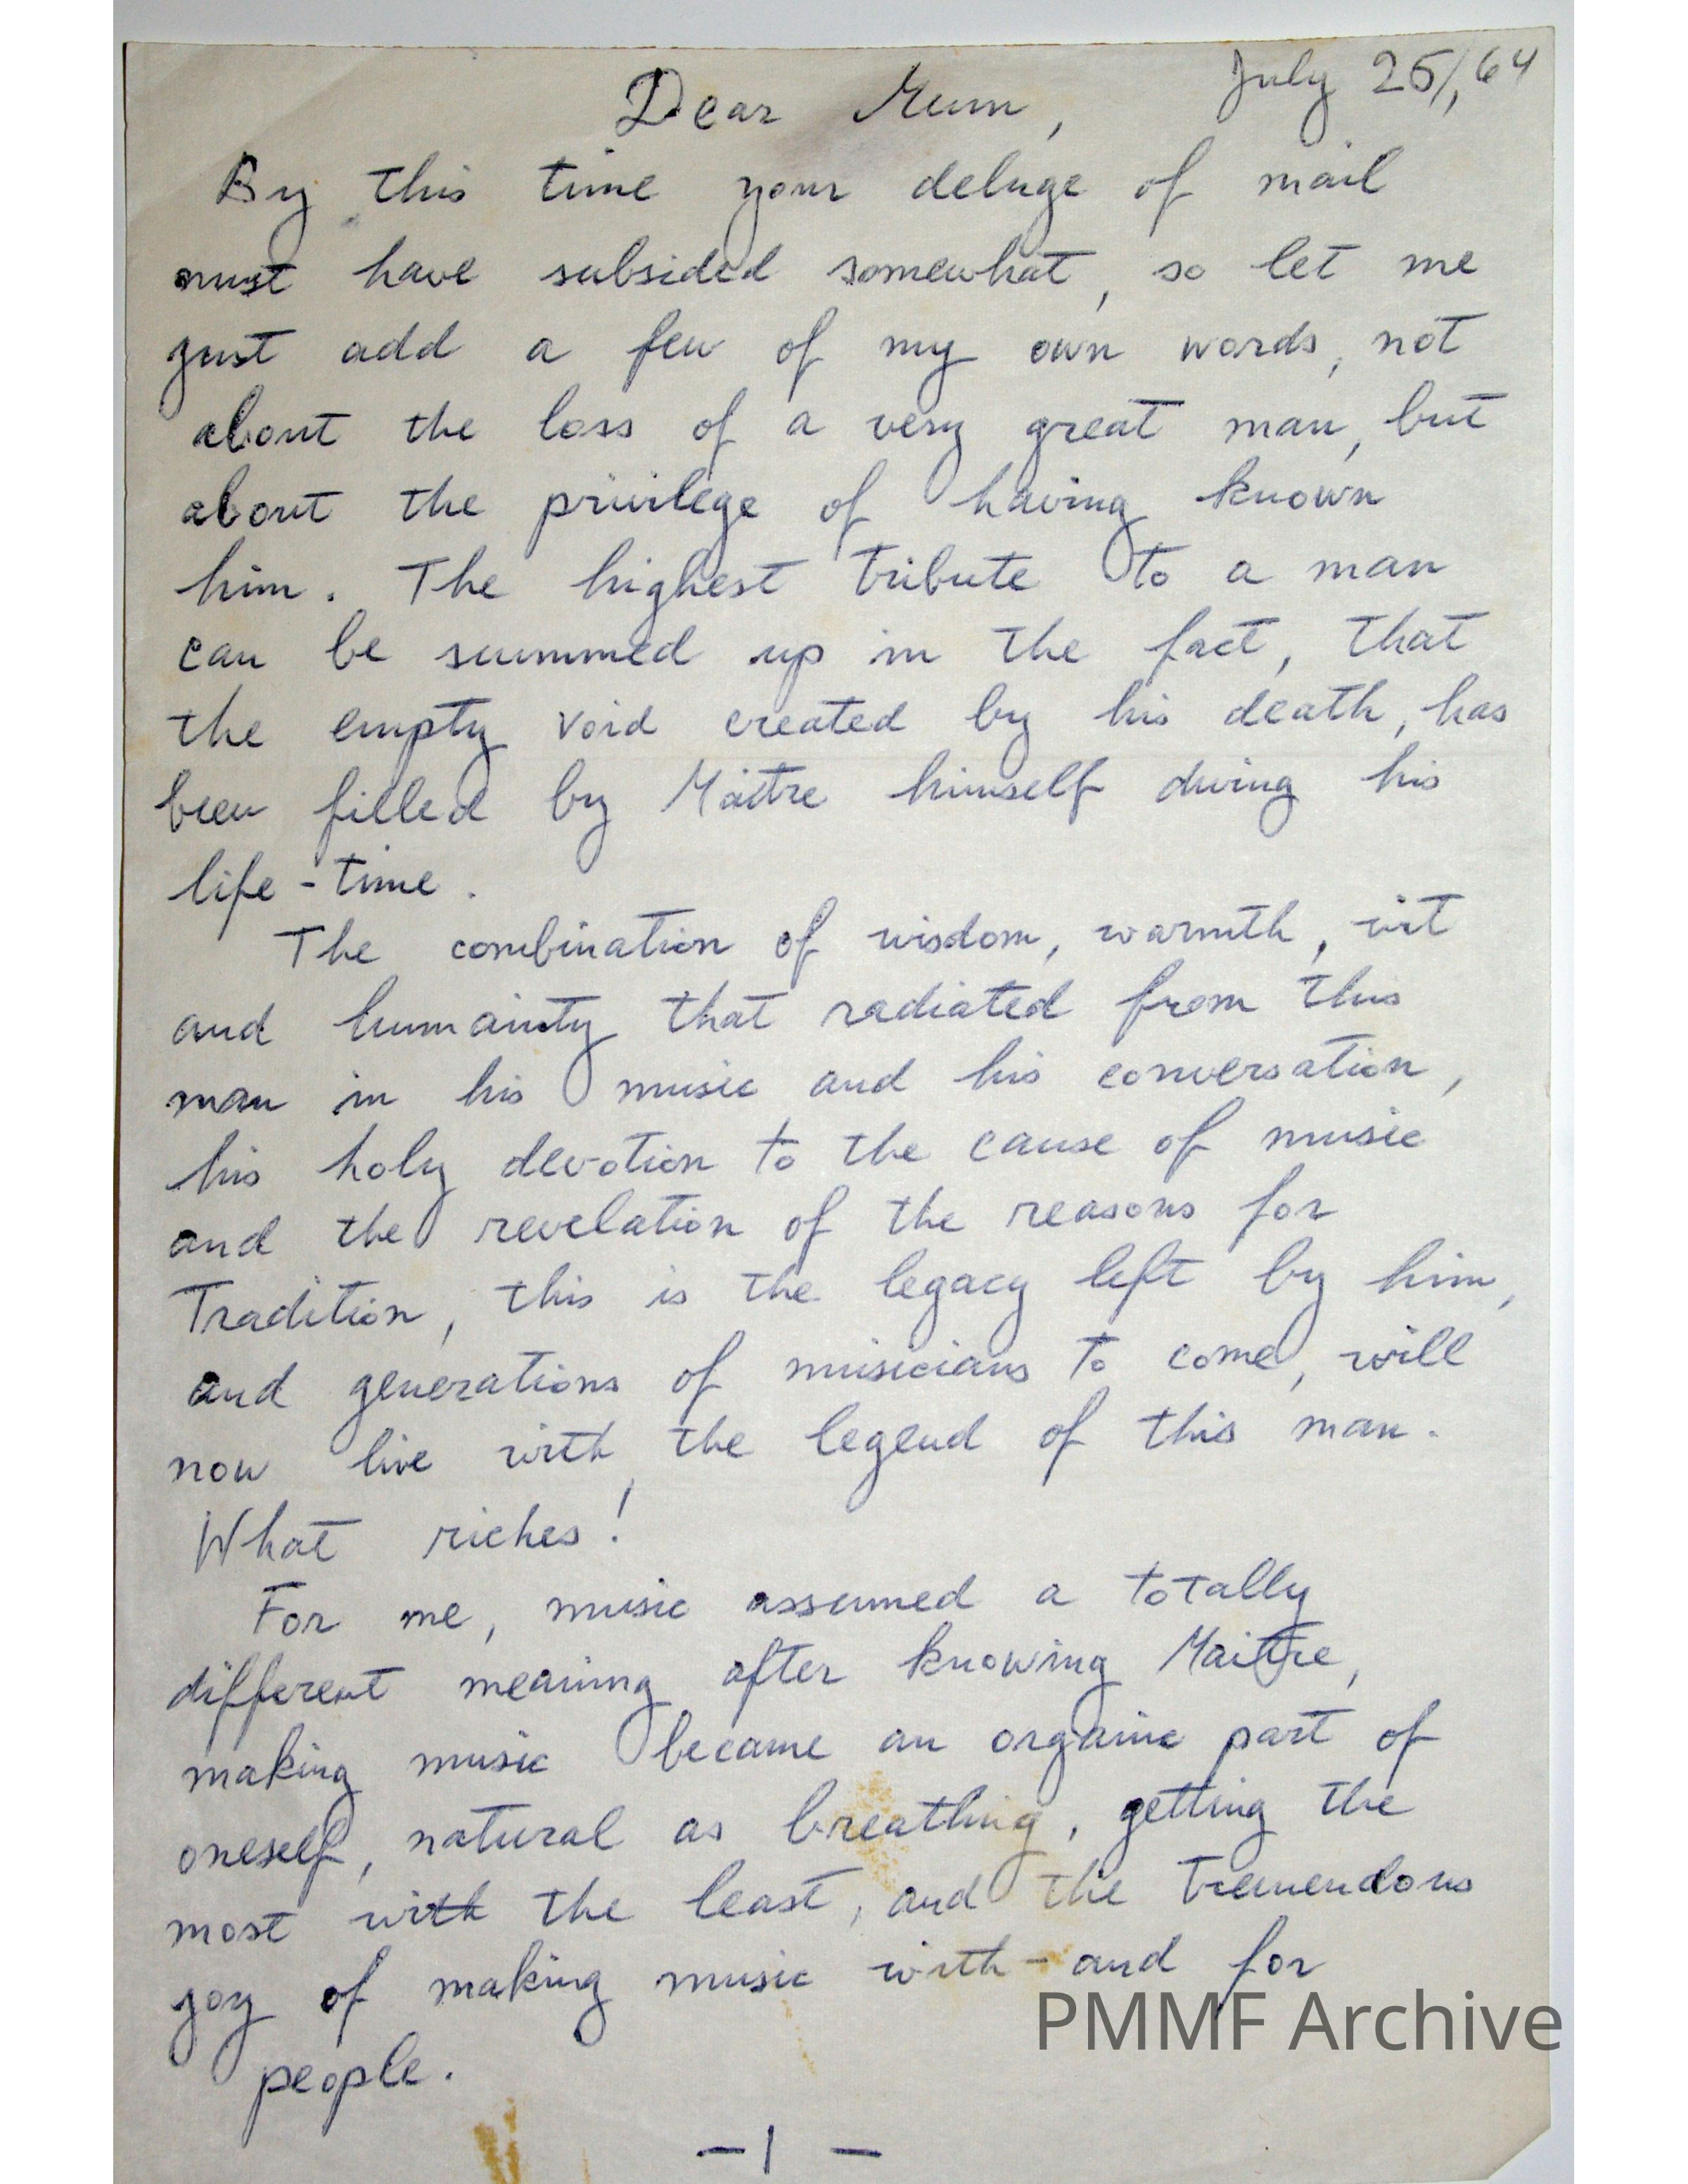 July 25/, 64
Dear Mum,
By this time your deluge of mail
must have subsided somewhat, so let me
just add a few of my own words, not
about the loss of a very great man, but
about the privilege of having known
him. The highest tribute to a man
can be summed up in the fact, that
the empty void created by his death, has
been filled by Maître himself during his
life-time.
The combination of wisdom, warmth, wit
and humanity that radiated from this
man in his music and his conversation,
his holy devotion to the cause of music
and the revelation of the reasons for
Tradition, this is the legacy left by him,
and generations of musicians to come, will
now live with the legend of this man.
What riches!
For me, music assumed a totally
different meaning after knowing Maitre,
making music became an organic part of
oneself, natural as breathing, getting the
most with the least, and the tremendous
joy of making music with - and for
people.
PMMF Archive
- 1 -